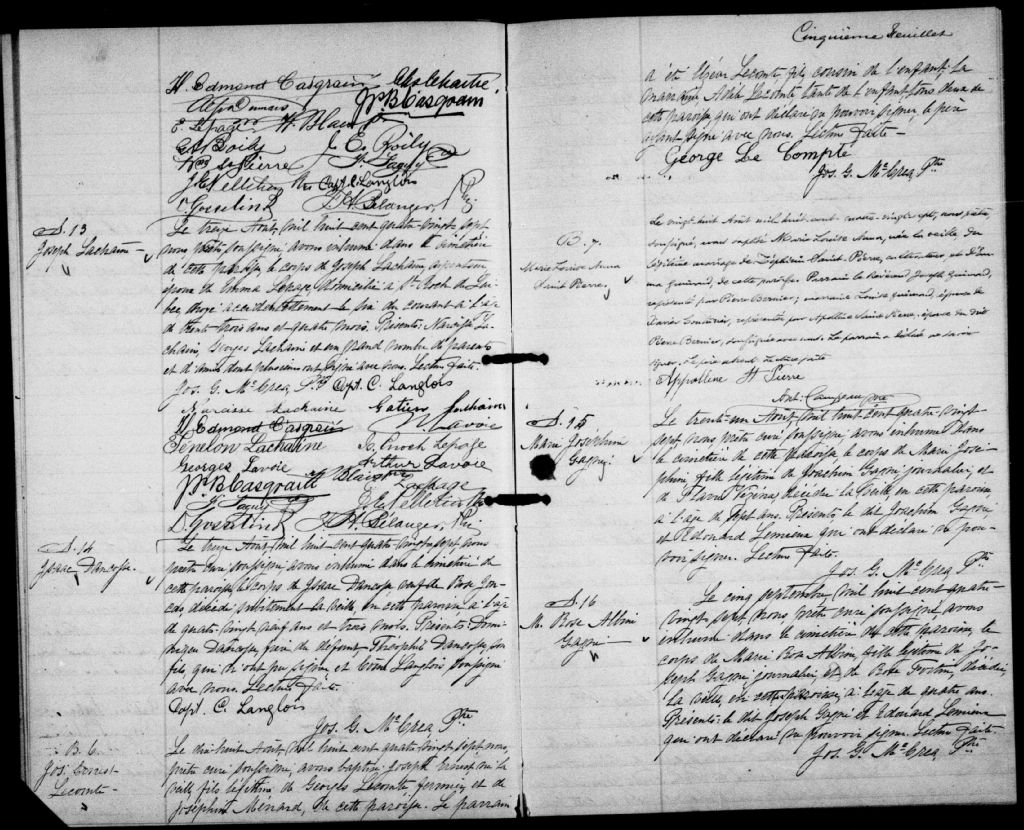 H. Edmond Casgrain
Ph. B. Casgrain
E. Lepage Ptre H. Blais Ptre
J. E. Roily
J. E. Pelletier Ptre Capt. C. Langlois
Gosselin J. A. Bélanger, Ptre
S. 13
Joseph Lachain
Le treize Août, mil huit cent quatre vingt sept
nous prêtre soussigné avons inhumé dans le cimetière
de cette paroisse, le corps de Joseph Lachain,
époux de Emma Lepage domicilié à St. Roch de Qué-
bec, noyé accidentellement le six du courant à l'âge
de trente trois ans et quatre mois. Présents: Narcisse La-
chain, Georges Lachain et un grand nombre de parents
et d'amis dont plusieurs ont signé avec nous. Lecture faite.
Jos. G. McCrea Ptre Capt. C. Langlois
Narcisse Lachaine Gatien Lachaine
H. Edmond Casgrain Lavoie
Fénelon Lachaine Enoch Lepage
Georges Lavoie Arthur Lavoie
Ph. B. Casgrain H. Blais Ptre
Lepage
J. E. Pelletier Ptre
D. Gosselin J. A. Bélanger, Ptre
S. 14
Isaac Dancosse
Le treize Août, mil huit cent quatre vingt sept nous
prêtre curé soussigné avons inhumé dans le cimetière de
cette paroisse, le corps de Isaac Dancosse veuf de Rose
décédé subitement la veille, en cette paroisse à l'âge
de quatre-vingt neuf ans et trois mois. Présents:
Dancosse, frère du défunt Théophile Dancosse, son
fils, qui n'ont pu signer et Langlois soussigné
avec nous. Lecture faite.
Capt. C. Langlois
Jos. G. McCrea Ptre
B. 6
Jos. Ernest
Lecomte
Le vingt huit Août, mil huit cent quatre vingt sept nous,
prêtre curé soussigné, avons baptisé Joseph Ernest né la
veille, fils légitime de Georges Lecomte, fermier, et de
Joséphine Ménard, de cette paroisse. Le parrain
Cinquième feuillet
a été Lecomte, fils, cousin de l'enfant, la
marraine, Adèle Lecomte tante de l'enfant, tous deux de
cette paroisse, qui ont déclaré ne pouvoir signer, le père
ayant signé avec nous. Lecture faite.
George Le Compte
Jos. G. McCrea Ptre
B. 7.
Marie Louise Anna
Saint Pierre
Le vingt huit Août mil huit cent quatre-vingt-sept, nous, prêtre,
soussigné, avons baptisé Marie Louise Anna, née la veille du
légitime mariage de Zéphirin Saint-Pierre, cultivateur, et d'Em-
ma Guimard, de cette paroisse. Parrain le Révérend Joseph Guimard,
représenté par Pierre Bernier; marraine Louise Guimard, épouse de
Xavier Couturier, représentée par Apolline Saint Pierre, épouse du dit
Pierre Bernier, soussignée avec nous. Le parrain a déclaré ne savoir
signer. Le père absent. Lecture faite
Appolline St Pierre
Ant: Campeau ptre
S. 15
Marie Josephine
Gagné
Le trente-un Août, mil huit cent quatre vingt
sept nous prêtre curé soussigné avons inhumé dans
le cimetière de cette paroisse le corps de Marie José-
phine fille légitime de Joachim Gagné journalier, et
de Flavie Vézina, décédée la veille, en cette paroisse
à l'âge de sept ans. Présents: le dit Joachim Gagné
et Edouard Lemieux qui ont déclaré ne pou-
voir signer. Lecture faite.
Jos. G. McCrea Ptre
S. 16
M. Rose Albini
Gagné
Le cinq septembre, mil huit cent quatre-
vingt sept nous prêtre curé soussigné avons
inhumé dans le cimetière de cette paroisse, le
corps de Marie Rose Albini, fille légitime de Jo-
seph Gagné journalier, et de Rose Fortin, décédée,
la veille, en cette paroisse, à l'âge de quatre ans.
Présents: le dit Joseph Gagné et Edouard Lemieux
qui ont déclaré ne pouvoir signer. Lecture faite.
Jos. G. McCrea, Ptre